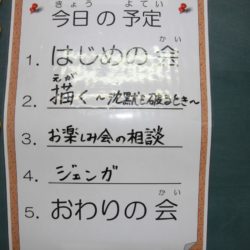 きょう よてい
今日の予定
かい
1. はじめの会
えが
2. 描く～沈黙を破るとき～
3. お楽しみ会の相談
4. ジェンガ
かい
5. おわりの会